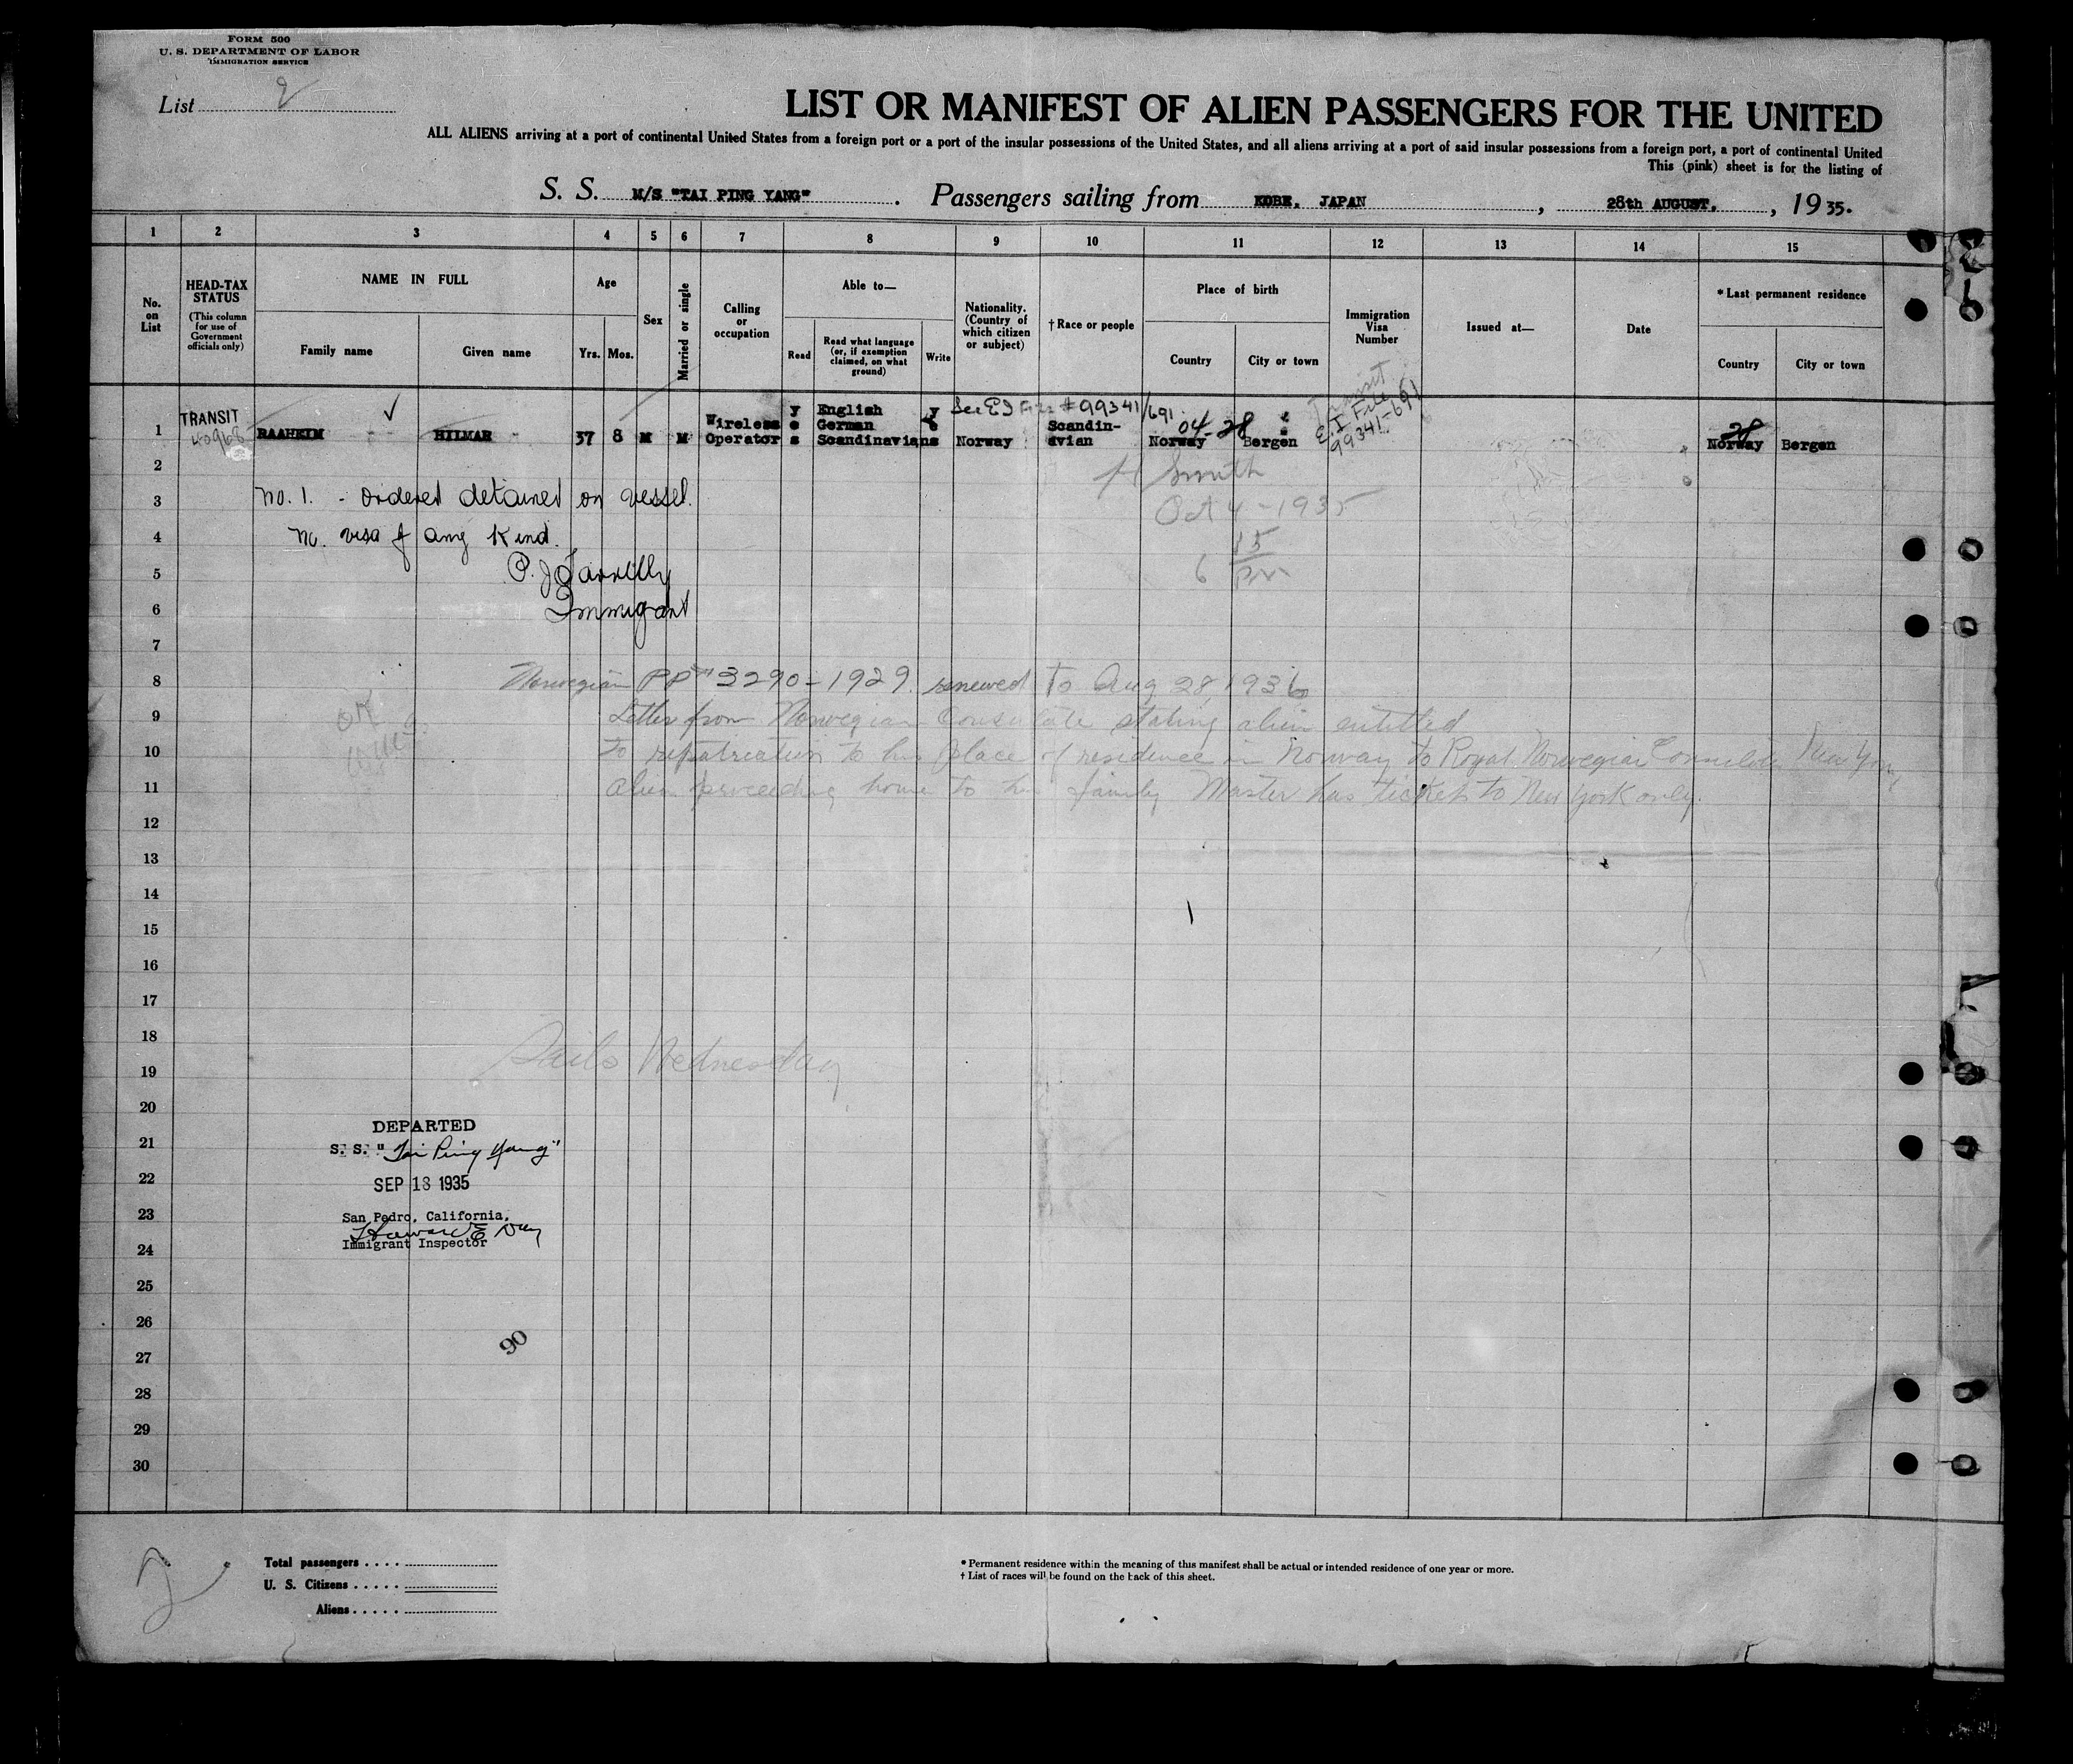 FORM 500
U. S. DEPARTMENT OF LABOR
IMMIGRATION SERVICE
List 2
LIST OR MANIFEST OF ALIEN PASSENGERS FOR THE UNITED
ALL ALIENS arriving at a port of continental United States from a foreign port or a port of the insular possessions of the United States, and all aliens arriving at a port of said insular possessions from a foreign port, a port of continental United
This (pink) sheet is for the listing of
S. S. M/S "TAI PING YANG". Passengers sailing from KOBE, JAPAN, 28th AUGUST, , 1935.
1 2 3 4 5 6 7 8 9 10 11 12 13 14 15
No. on List
HEAD-TAX STATUS
(This column for use of Government officials only)
NAME IN FULL
Family name
Given name
Age
Yrs. Mos.
Sex
Married or single
Calling or occupation
Able to—
Read
Read what language (or, if exemption claimed, on what ground)
Write
Nationality. (Country of which citizen or subject)
† Race or people
Place of birth
Country
City or town
Immigration Visa Number
Issued at—
Date
* Last permanent residence
Country
City or town
See E I File #99341/691
Transit
E.I File
99341-691
1 TRANSIT 40968 RAAHEIM HILMAR 37 8 M M Wireless Operator yes English German Scandinavian yes Norway Scandinavian Norway 04-28 Bergen Norway 28 Bergen
2
H Smith
3 No. 1. - ordered detained on vessel.
Oct 4 - 1935
4 No visa of any kind.
15
5 P. J. Farrelly
6 PM
6 Immigrant
7
8 Norwegian PP # 3290-1929. renewed to Aug 28, 1936
9 Letter from Norwegian Consulate stating alien entitled
10 to repatriation to his place of residence in Norway to Royal Norwegian Consulate New York
11 Alien proceeding home to his family Master has ticket to New York only.
12
13
14
15
16
17
18
Sails Wednesday
19
20
DEPARTED
21 S. S. "Tai Ping Yang"
22 SEP 18 1935
23 San Pedro, California,
Howard E Day
24 Immigrant Inspector
25
26
90
27
28
29
30
2
Total passengers ....
U. S. Citizens .....
Aliens .....
* Permanent residence within the meaning of this manifest shall be actual or intended residence of one year or more.
† List of races will be found on the back of this sheet.